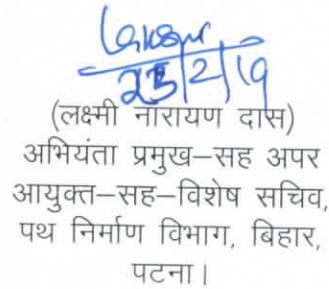 23/2/19
(लक्ष्मी नारायण दास)
अभियंता प्रमुख–सह अपर
आयुक्त–सह–विशेष सचिव,
पथ निर्माण विभाग, बिहार,
पटना।